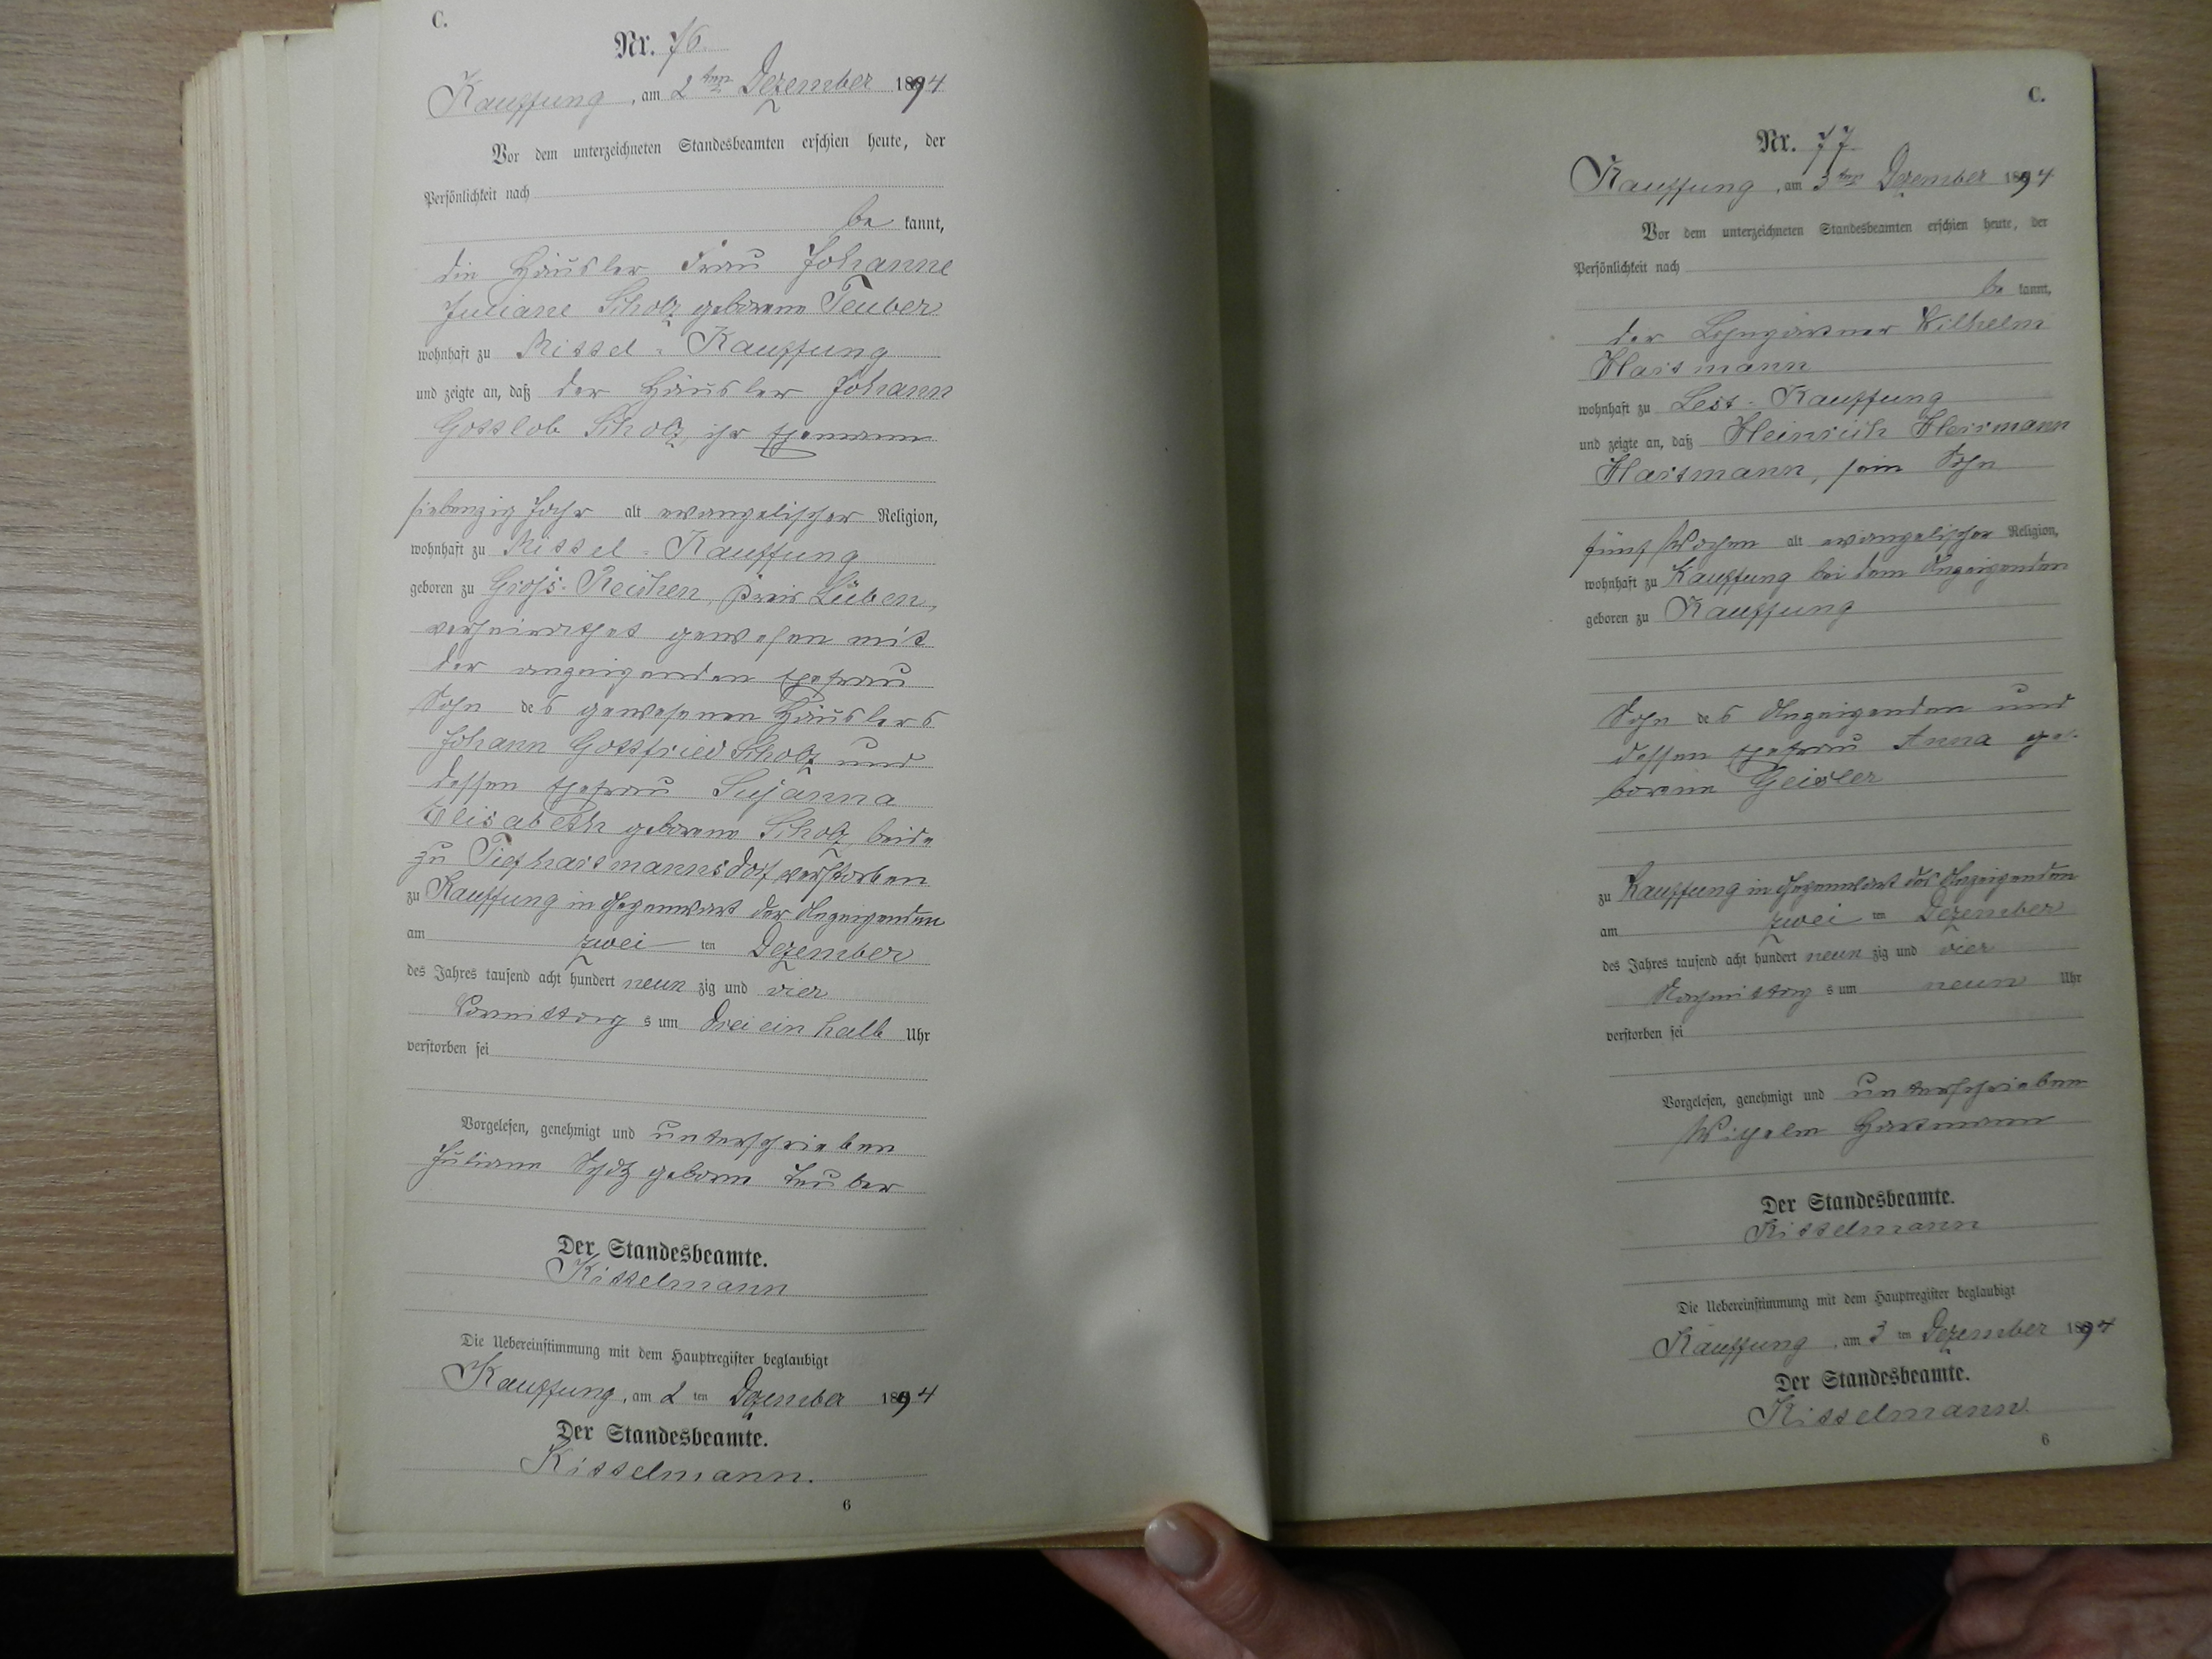 C.
Nr. 76.
Kauffung, am 2ten Dezember 1894
Vor dem unterzeichneten Standesbeamten erschien heute, der
Persönlichkeit nach
be kannt,
die Häusler Frau Johanne
Juliane Scholz geborene Teuber
wohnhaft zu Mittel-Kauffung
und zeigte an, daß der Häusler Johann
Gottlob Scholz, ihr Ehemann
siebenzig Jahr alt evangelischer Religion,
wohnhaft zu Mittel-Kauffung
geboren zu Groß-Reichen, Kreis Lüben,
verheirathet gewesen mit
der anzeigenden Ehefrau
Sohn des gewesenen Häuslers
Johann Gottfried Scholz und
dessen Ehefrau Susanna
Elisabeth geborene Scholz, beide
zu Tiefhartmannsdorf verstorben
zu Kauffung in Gegenwart der Anzeigenden
am zwei ten Dezember
des Jahres tausend acht hundert neun zig und vier
Vormittag s um drei ein halb Uhr
verstorben sei
Vorgelesen, genehmigt und unterschrieben
Juliane Scholz geborne Teuber
Der Standesbeamte.
Kittelmann
Die Uebereinstimmung mit dem Hauptregister beglaubigt
Kauffung, am 2 ten Dezember 1894
Der Standesbeamte.
Kittelmann.
6
C.
Nr. 77
Kauffung, am 3ten Dezember 1894
Vor dem unterzeichneten Standesbeamten erschien heute, der
Persönlichkeit nach
be kannt,
der Lohngärtner Wilhelm
Hartmann
wohnhaft zu Lest-Kauffung
und zeigte an, daß Heinrich Herrmann
Hartmann, sein Sohn
fünf Wochen alt evangelischer Religion,
wohnhaft zu Kauffung bei dem Anzeigenden
geboren zu Kauffung
Sohn des Anzeigenden und
dessen Ehefrau Anna ge-
borene Geisler
zu Kauffung in Gegenwart des Anzeigenden
am zwei ten Dezember
des Jahres tausend acht hundert neun zig und vier
Nachmittag s um neun Uhr
verstorben sei
Vorgelesen, genehmigt und unterschrieben
Wilhelm Hartmann
Der Standesbeamte.
Kittelmann
Die Uebereinstimmung mit dem Hauptregister beglaubigt
Kauffung, am 3 ten Dezember 1894
Der Standesbeamte.
Kittelmann
6